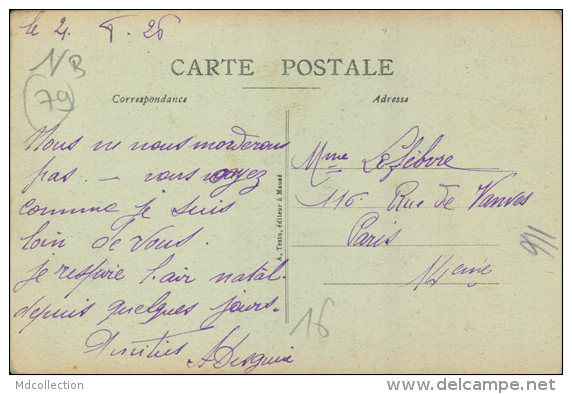 le 2. 8. 26
NB
79
CARTE POSTALE
Correspondance
Adresse
Nous ne nous morderons
pas. — vous voyez
comme je suis
loin de vous.
je respire l'air natal
depuis quelques jours.
Amitiés
A. Testu, éditeur à Mauzé
Mme Lefèbvre
116 Rue de Vanves
Paris
14eme
16
Mdcollection
www.delcampe.net